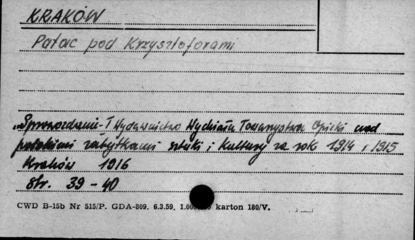 KRAKÓW
Pałac pod Krzysztoforami
„Sprawozdanie- i Wydawnictwo Wydziału Towarzystwa Opieki nad
polskimi zabytkami sztuki i kultury za rok 1914 i 1915
Kraków 1916
str. 39-40
CWD B-15b Nr 515/P. GDA-809. 6.3.59. karton 180/V.